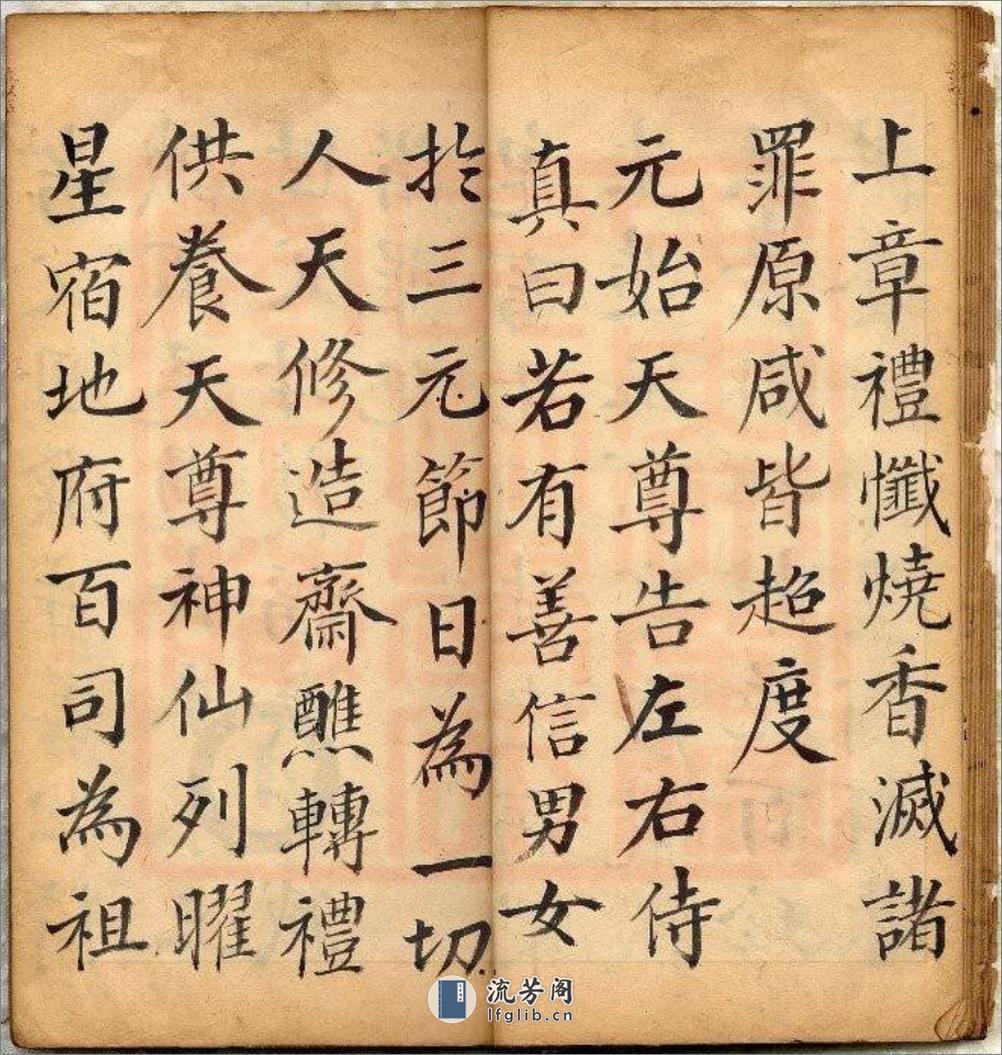 上章禮懺燒香滅諸
罪原咸皆超度
元始天尊告左右侍
真曰若有善信男女
扵三元節日為一切
人天修造齋醮轉禮
供養天尊神仙列曜
星宿地府百司為祖
流芳阁
lfglib.cn